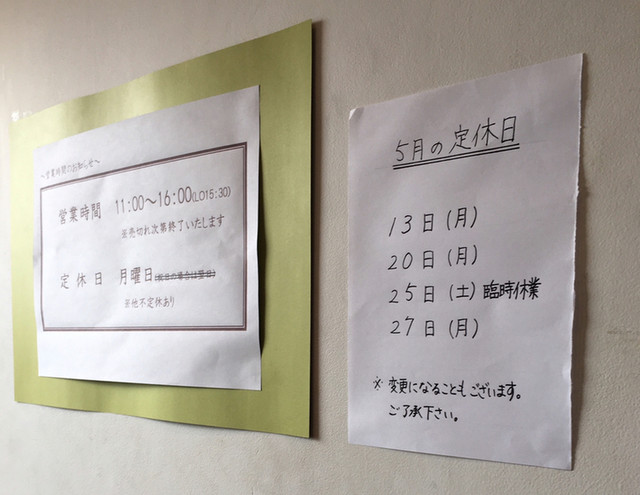 ～営業時間のお知らせ～
営業時間 11:00～16:00(LO15:30)
※売切れ次第終了いたします
定休日 月曜日(祝日の場合は翌日)
※他不定休あり
5月の定休日
13日(月)
20日(月)
25日(土)臨時休業
27日(月)
※ 変更になることもございます。
ご了承下さい。